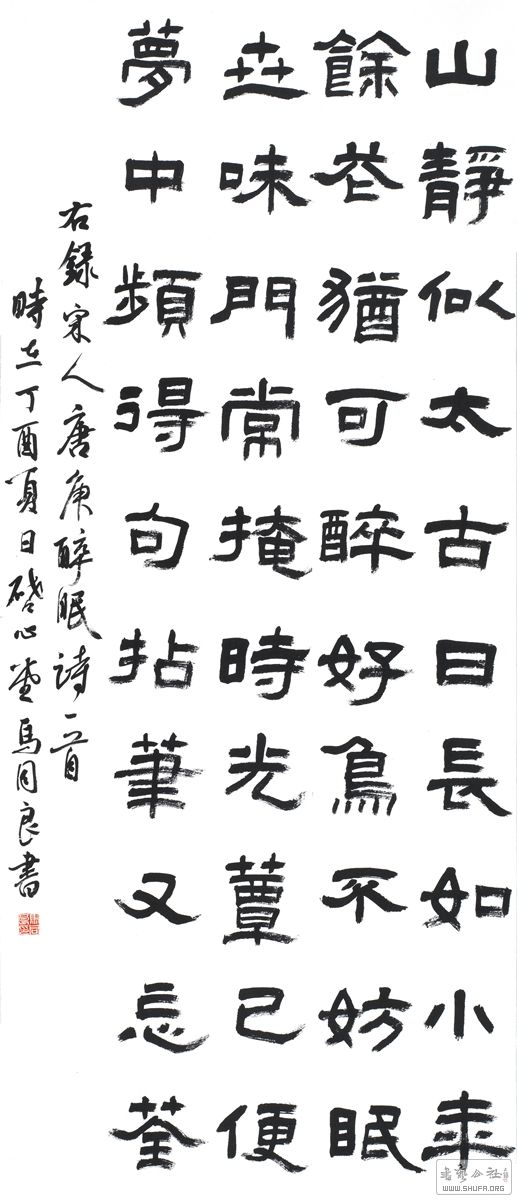 山靜似太古日長如小年
餘花猶可醉好鳥不妨眠
世味門常掩時光簟已便
夢中頻得句拈筆又忘筌
右録宋人唐庚醉眠詩一首
時在丁酉夏日啓心堂馬良書
書藝公社
WWW.SHUFA.ORG